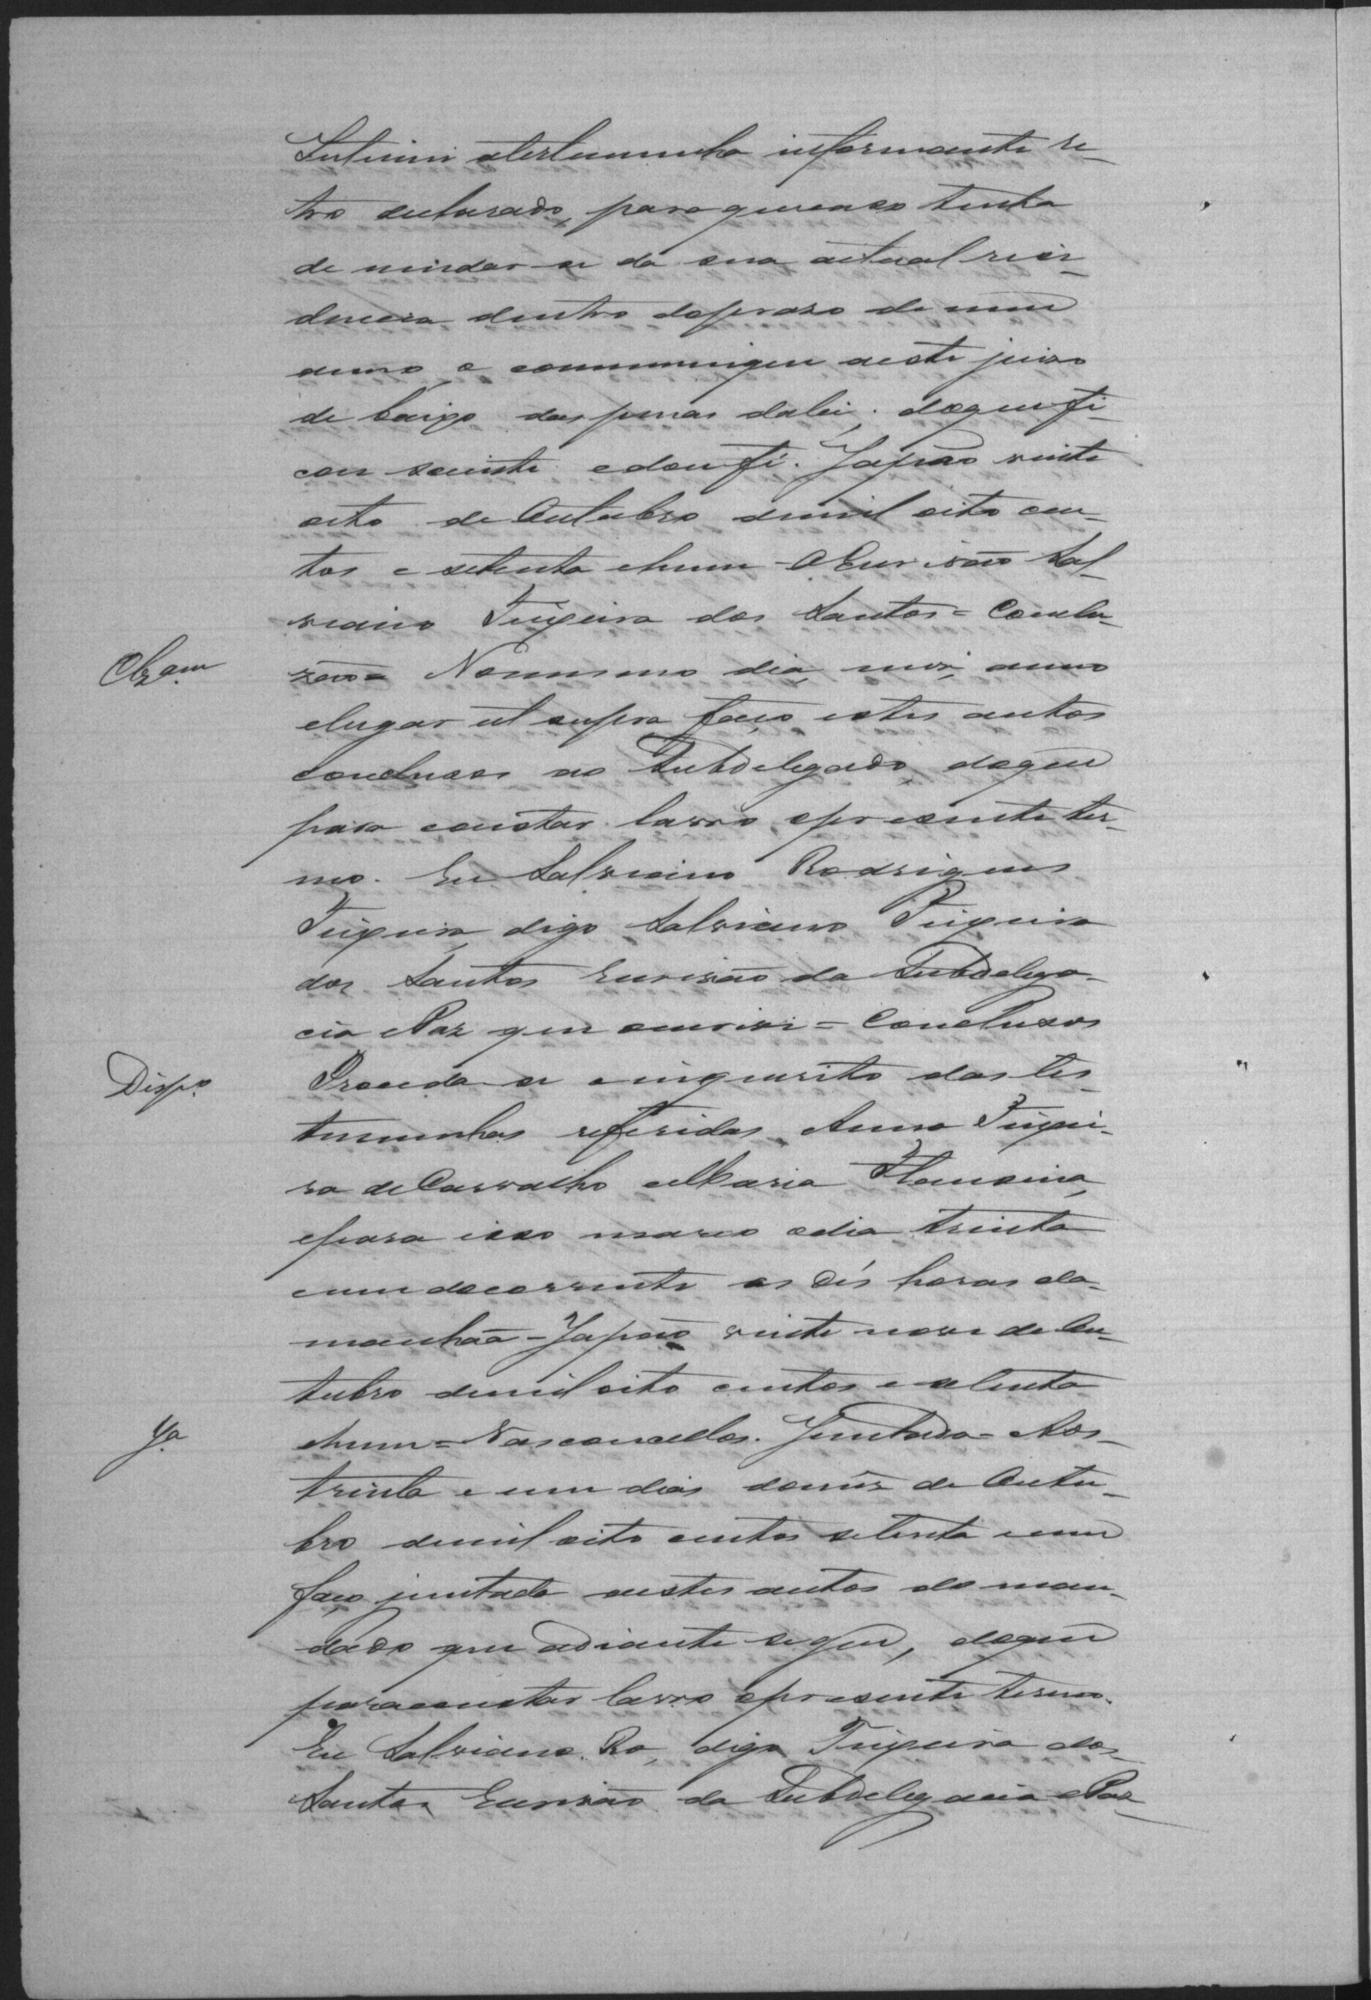 Intimei atestemunha informante re-
tro declarado, para quecaso tenha
de mudar se da sua actual resi-
dencia dentro doprazo de um
anno o communique aeste juizo
de baixo das penas dalei, doque fi-
cou sciente edoufé. Japão vinte
oito de Outubro demil oito cen-
tos e setenta ehum - OEscrivão Sal-
viano Teixeira dos Santos = Conclu-
Clzam
zão = Nomesmo dia, mez, anno
elugar ut supra faço estes autos
conclusos ao Subdelegado, doque
para constar lavro opresente ter-
mo. Eu Salviano Rodrigues
Teixeira, digo Salviano Teixeira
dos Santos Escrivão da Subdelega-
cia ePaz que oescrivi = Conclusos
Dispo.
Proceda-se oinquerito das tes-
temunhas referidas, Anna Teixei-
ra deCarvalho eMaria
epara isso marco odia trinta
eum docorrente as Dés horas da
manhaã - Japão vinte nove deOu-
tubro demil oito centos e setenta
Ja.
ehum = Vasconcellos. Juntada = Aos
trinta e um dias domêz de Outu-
bro demil oito centos setenta eum
faço juntada aestes autos do man-
dado que adiante segue, doque
paraconstar lavro opresente termo.
Eu Salviano. Ro, digo Teixeira dos
Santos Escrivão da Subdelegacia ePaz